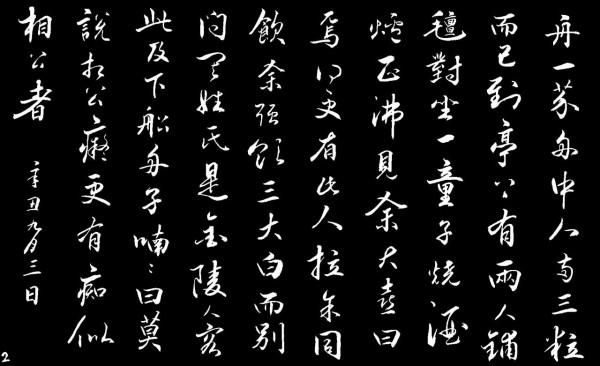 舟一芥舟中人兩三粒
而已到亭上有兩人鋪
氈對坐一童子燒酒
爐正沸見余大喜曰
焉得更有此人拉余同
飲余強飲三大白而別
問其姓氏是金陵人客
此及下船舟子喃々曰莫
說相公癡更有痴似
相公者
辛丑九月三日
2